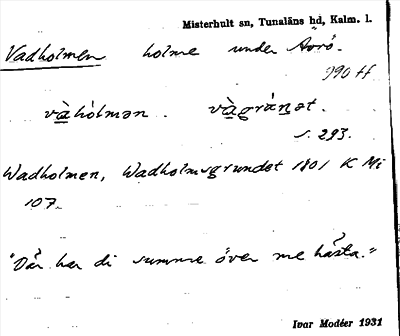 Misterhult sn, Tunaläns hd, Kalm. l.
Vadholmen holme under Ävrö.
990 H
vàhólmən. vàgrúnət.
s. 293.
Wadholmen, Wadholmsgrundet 1801 K Mi
107.
"Där har di summe över me hästa."
Ivar Modéer 1931